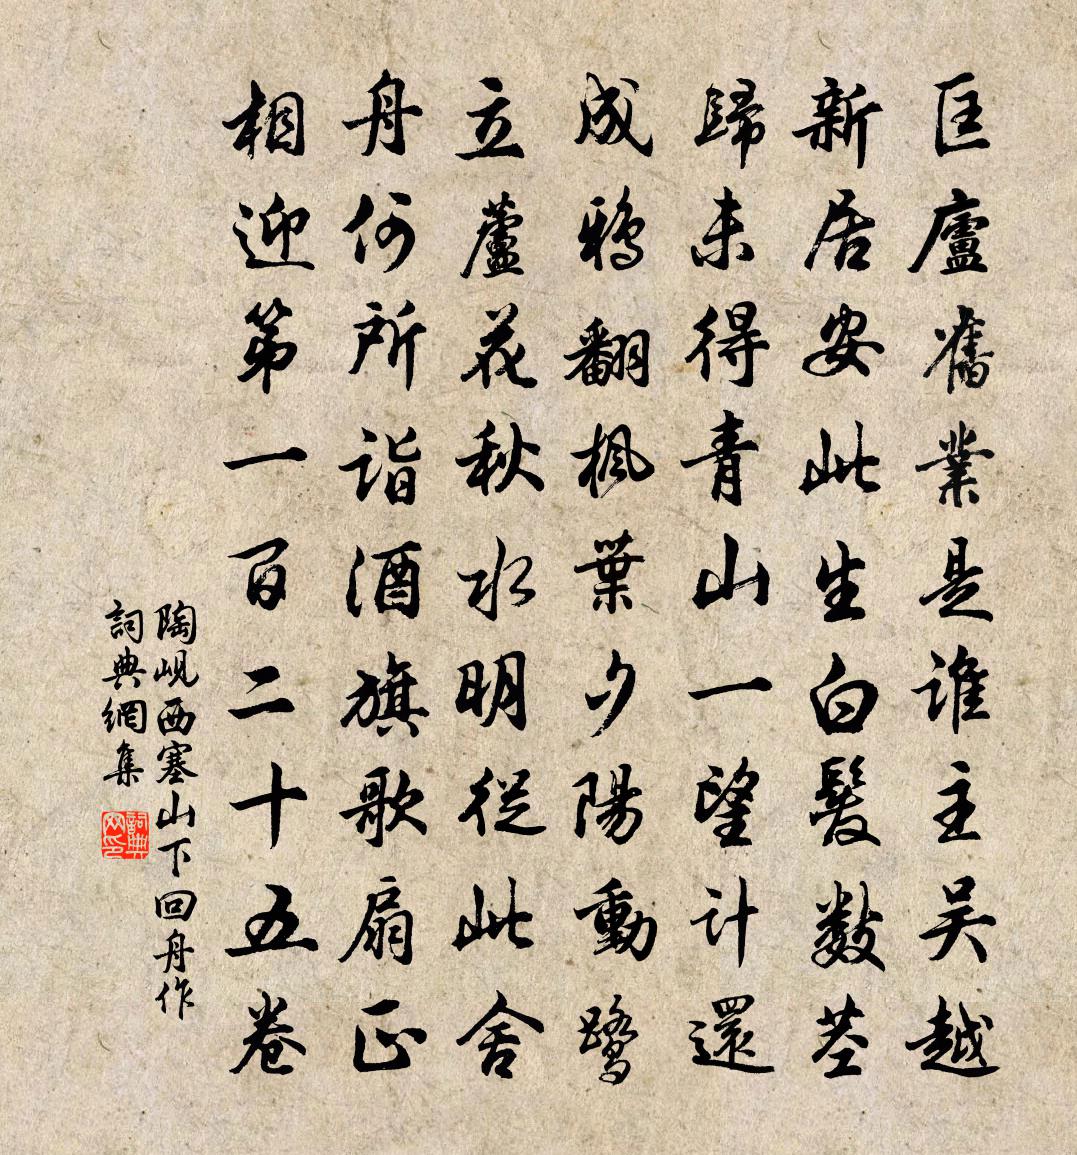 匡廬舊業是誰主吴越
新居安此生白髮數莖
歸未得青山一望計還
成鴉翻楓葉夕陽動鷺
立蘆花秋水明從此舍
舟何所詣酒旗歌扇正
相迎第一百二十五卷
陶峴西塞山下回舟作
詞典網集
詞典网印